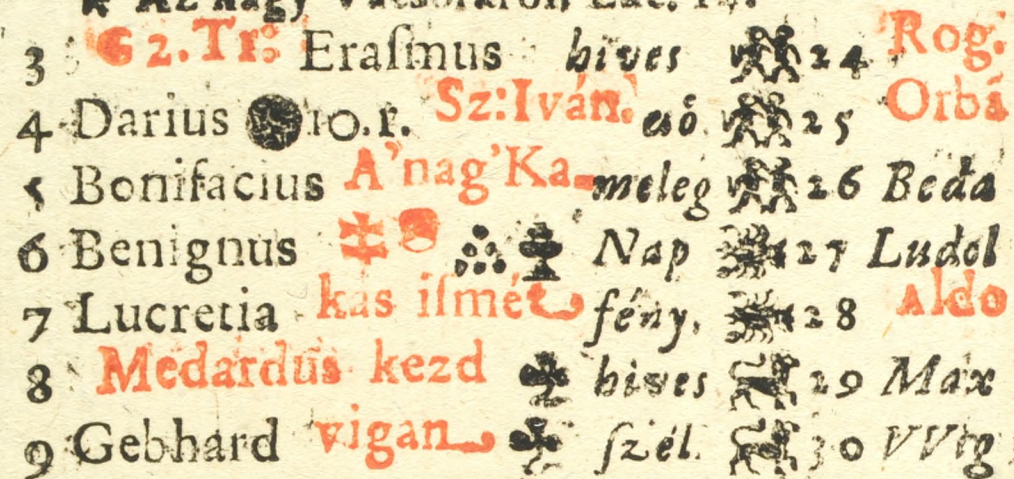 A'z nagy Vacsoráról, Luc. 14.
3 C z. Tr: Eraſmus hives 24 Rog.
4 Darius 10. r. Sz: Iván. eső. 25 Orbā
5 Bonifacius A' nag' Ka- meleg 26 Beda
6 Benignus Nap 27 Ludol
7 Lucretia kas iſmét fény, 28 Aldo
8 Medardus kezd hives 29 Max
9 Gebhard vigan ſzél. 30 VVig